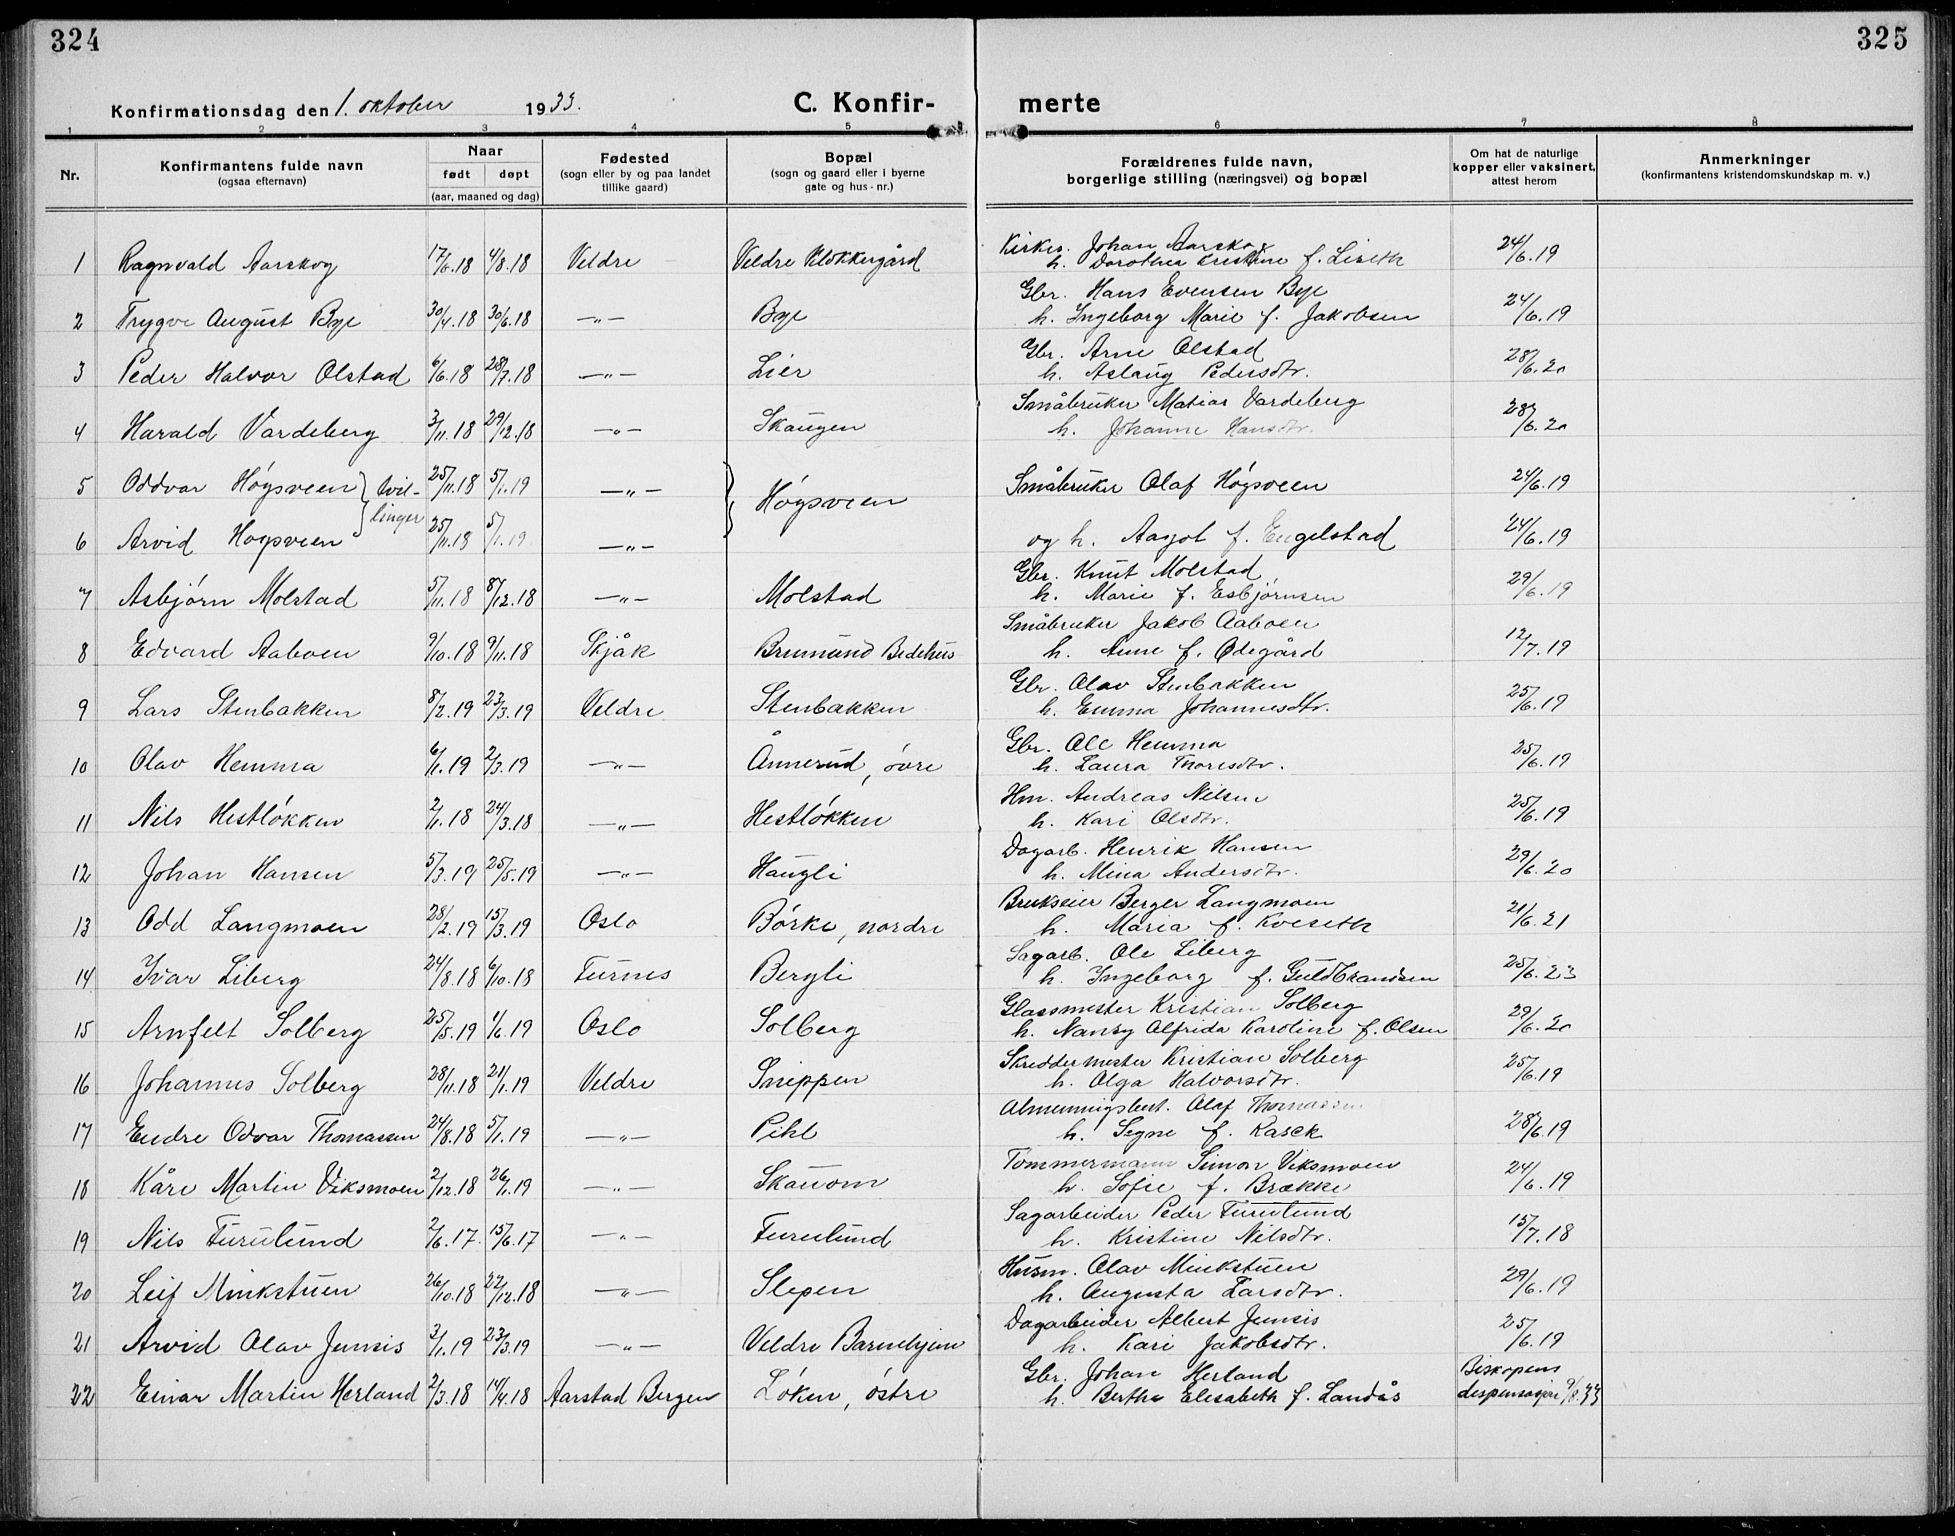 324
325
Konfirmationsdag den 1. oktober 1933.
C. Konfir- merte
1 2 3 4 5 6 7 8
Nr. | Konfirmantens fulde navn (ogsaa efternavn) | Naar født døpt (aar, maaned og dag) | Fødested (sogn eller by og paa landet tillike gaard) | Bopæl (sogn og gaard eller i byerne gate og hus-nr.) | Forældrenes fulde navn, borgerlige stilling (næringsvei) og bopæl | Om hat de naturlige kopper eller vaksinert, attest herom | Anmerkninger (konfirmantens kristendomskundskap m. v.)
1 Ragnvald Aarskog 17/6.18 4/8.18 Veldre Veldre Klokkergård Kirkes. Johan Aarskog h. Dorothea Kristine f. Liseth 24/6.19
2 Trygve August Bye 30/4.18 30/6.18 —"— Bye Gbr. Hans Evensen Bye h. Ingeborg Marie f. Jakobsen 24/6.19
3 Peder Halvor Olstad 6/6.18 28/7.18 —"— Lier Gbr. Arne Olstad h. Aslaug Pedersdtr. 28/6.20
4 Harald Vardeberg 3/11.18 29/12.18 —"— Skaugen Småbruker Matias Vardeberg h. Johanne Hansdtr. 28/6.20
5 Oddvar Høgsveen } tvil- 25/11.18 5/1.19 —"— } Høgsveen Småbruker Olaf Høgsveen 24/6.19
6 Arvid Høgsveen } linger 25/11.18 5/1.19 —"— og h. Aagot f. Engelstad 24/6.19
7 Asbjørn Molstad 5/11.18 8/12.18 —"— Molstad Gbr. Knut Molstad h. Marie f. Esbjørnsen 29/6.19
8 Edvard Aaboen 9/10.18 9/11.18 Skjåk Brumund Bedehus Småbruker Jakob Aaboen h. Anne f. Ødegård 12/7.19
9 Lars Stenbakken 8/2.19 23/3.19 Veldre Stenbakken Gbr. Olav Stenbakken h. Emma Johannesdtr. 25/6.19
10 Olav Hemma 6/1.19 2/3.19 —"— Ånnerud, øvre Gbr. Ole Hemma h. Laura Thoresdtr. 25/6.19
11 Nils Hestløkken 2/1.18 24/3.18 —"— Hestløkken Hm. Andreas Nilsen h. Kari Olsdtr. 25/6.19
12 Johan Hansen 5/3.19 25/5.19 —"— Haugli Dagarb. Henrik Hansen h. Mina Andersdtr. 29/6.20
13 Odd Langmoen 28/2.19 15/3.19 Oslo Børke, nordre Brukseier Berger Langmoen h. Maria f. Kveseth 21/6.21
14 Ivar Liberg 24/8.18 6/10.18 Furnes Bergli Sagarb. Ole Liberg h. Ingeborg f. Guldbrandsen 25/6.23
15 Arnfelt Solberg 25/5.19 1/6.19 Oslo Solberg Glassmester Kristian Solberg h. Nansy Alfrida Karoline f. Olsen 29/6.20
16 Johannes Solberg 28/11.18 21/1.19 Veldre Sneppen Skreddermester Kristian Solberg h. Olga Halvorsdtr. 25/6.19
17 Endre Odvar Thomassen 24/8.18 5/1.19 —"— Pihl Almenningsbest. Olaf Thomassen h. Signe f. Kasek 28/6.19
18 Kåre Martin Viksmoen 2/12.18 26/1.19 —"— Skauom Tømmermann Simon Viksmoen h. Sofie f. Brække 24/6.19
19 Nils Furulund 2/6.17. 15/6.17 —"— Furulund Sagarbeider Peder Furulund h. Kristine Nilsdtr. 15/7.18
20 Leif Minkstuen 26/10.18 22/12.18 —"— Slepen Husm. Olav Minkstuen h. Augusta Larsdtr. 29/6.19
21 Arvid Olav Jensis 3/1.19 23/3.19 —"— Veldre Barnehjem Dagarbeider Albert Jensis h. Kari Jakobsdtr. 25/6.19
22 Einar Martin Herland 2/3.18 14/4.18 Aarstad Bergen Løken, østre Gbr. Johan Herland h. Bertha Elisabeth f. Landås Biskopens dispensasjon 9/8.33